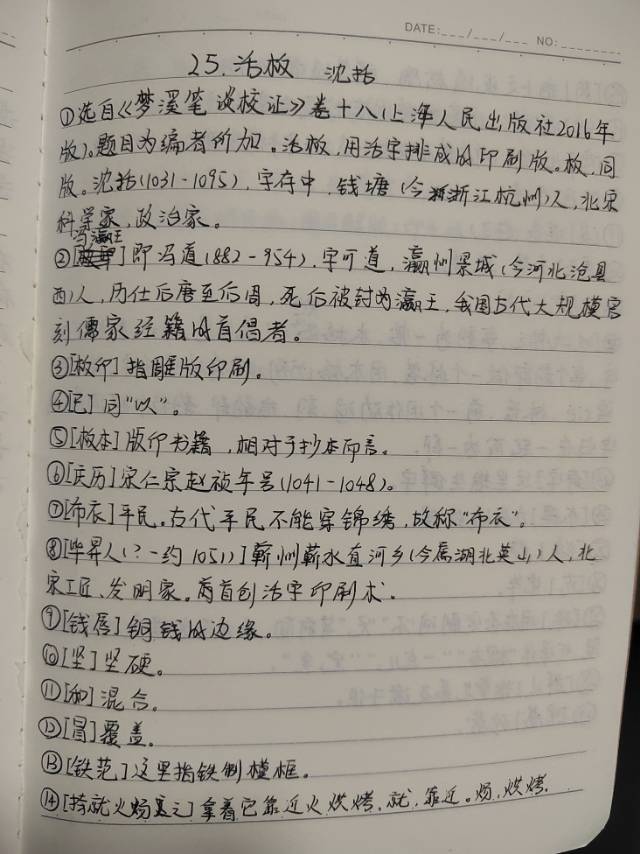 DATE:___/___/___ NO:________
25.活板 沈括
①选自《梦溪笔谈校证》卷十八(上海人民出版社2016年
版)。题目为编者所加。活板,用活字排成的印刷版。板,同
版。沈括(1031-1095),字存中,钱塘(今浙江杭州)人,北宋
科学家,政治家。
②[冯瀛王]即冯道(882-954),字可道,瀛州景城(今河北沧县
西)人,历仕后唐至后周,死后被封为瀛王,我国古代大规模官
刻儒家经籍的首倡者。
③[板印]指雕版印刷。
④[已]同“以”。
⑤[板本]版印书籍,相对于抄本而言。
⑥[庆历]宋仁宗赵祯年号(1041-1048)。
⑦[布衣]平民。古代平民不能穿锦绣,故称“布衣”。
⑧[毕昇人(?-约1051)]蕲州蕲水直河乡(今属湖北英山)人,北
宋工匠、发明家。为首创活字印刷术.
⑨[钱唇]铜钱的边缘。
⑩[坚]坚硬。
⑪[和]混合。
⑫[冒]覆盖。
⑬[铁范]这里指铁制模框.
⑭[持就火炀之]拿着它靠近火烘烤,就,靠近。炀,烘烤.